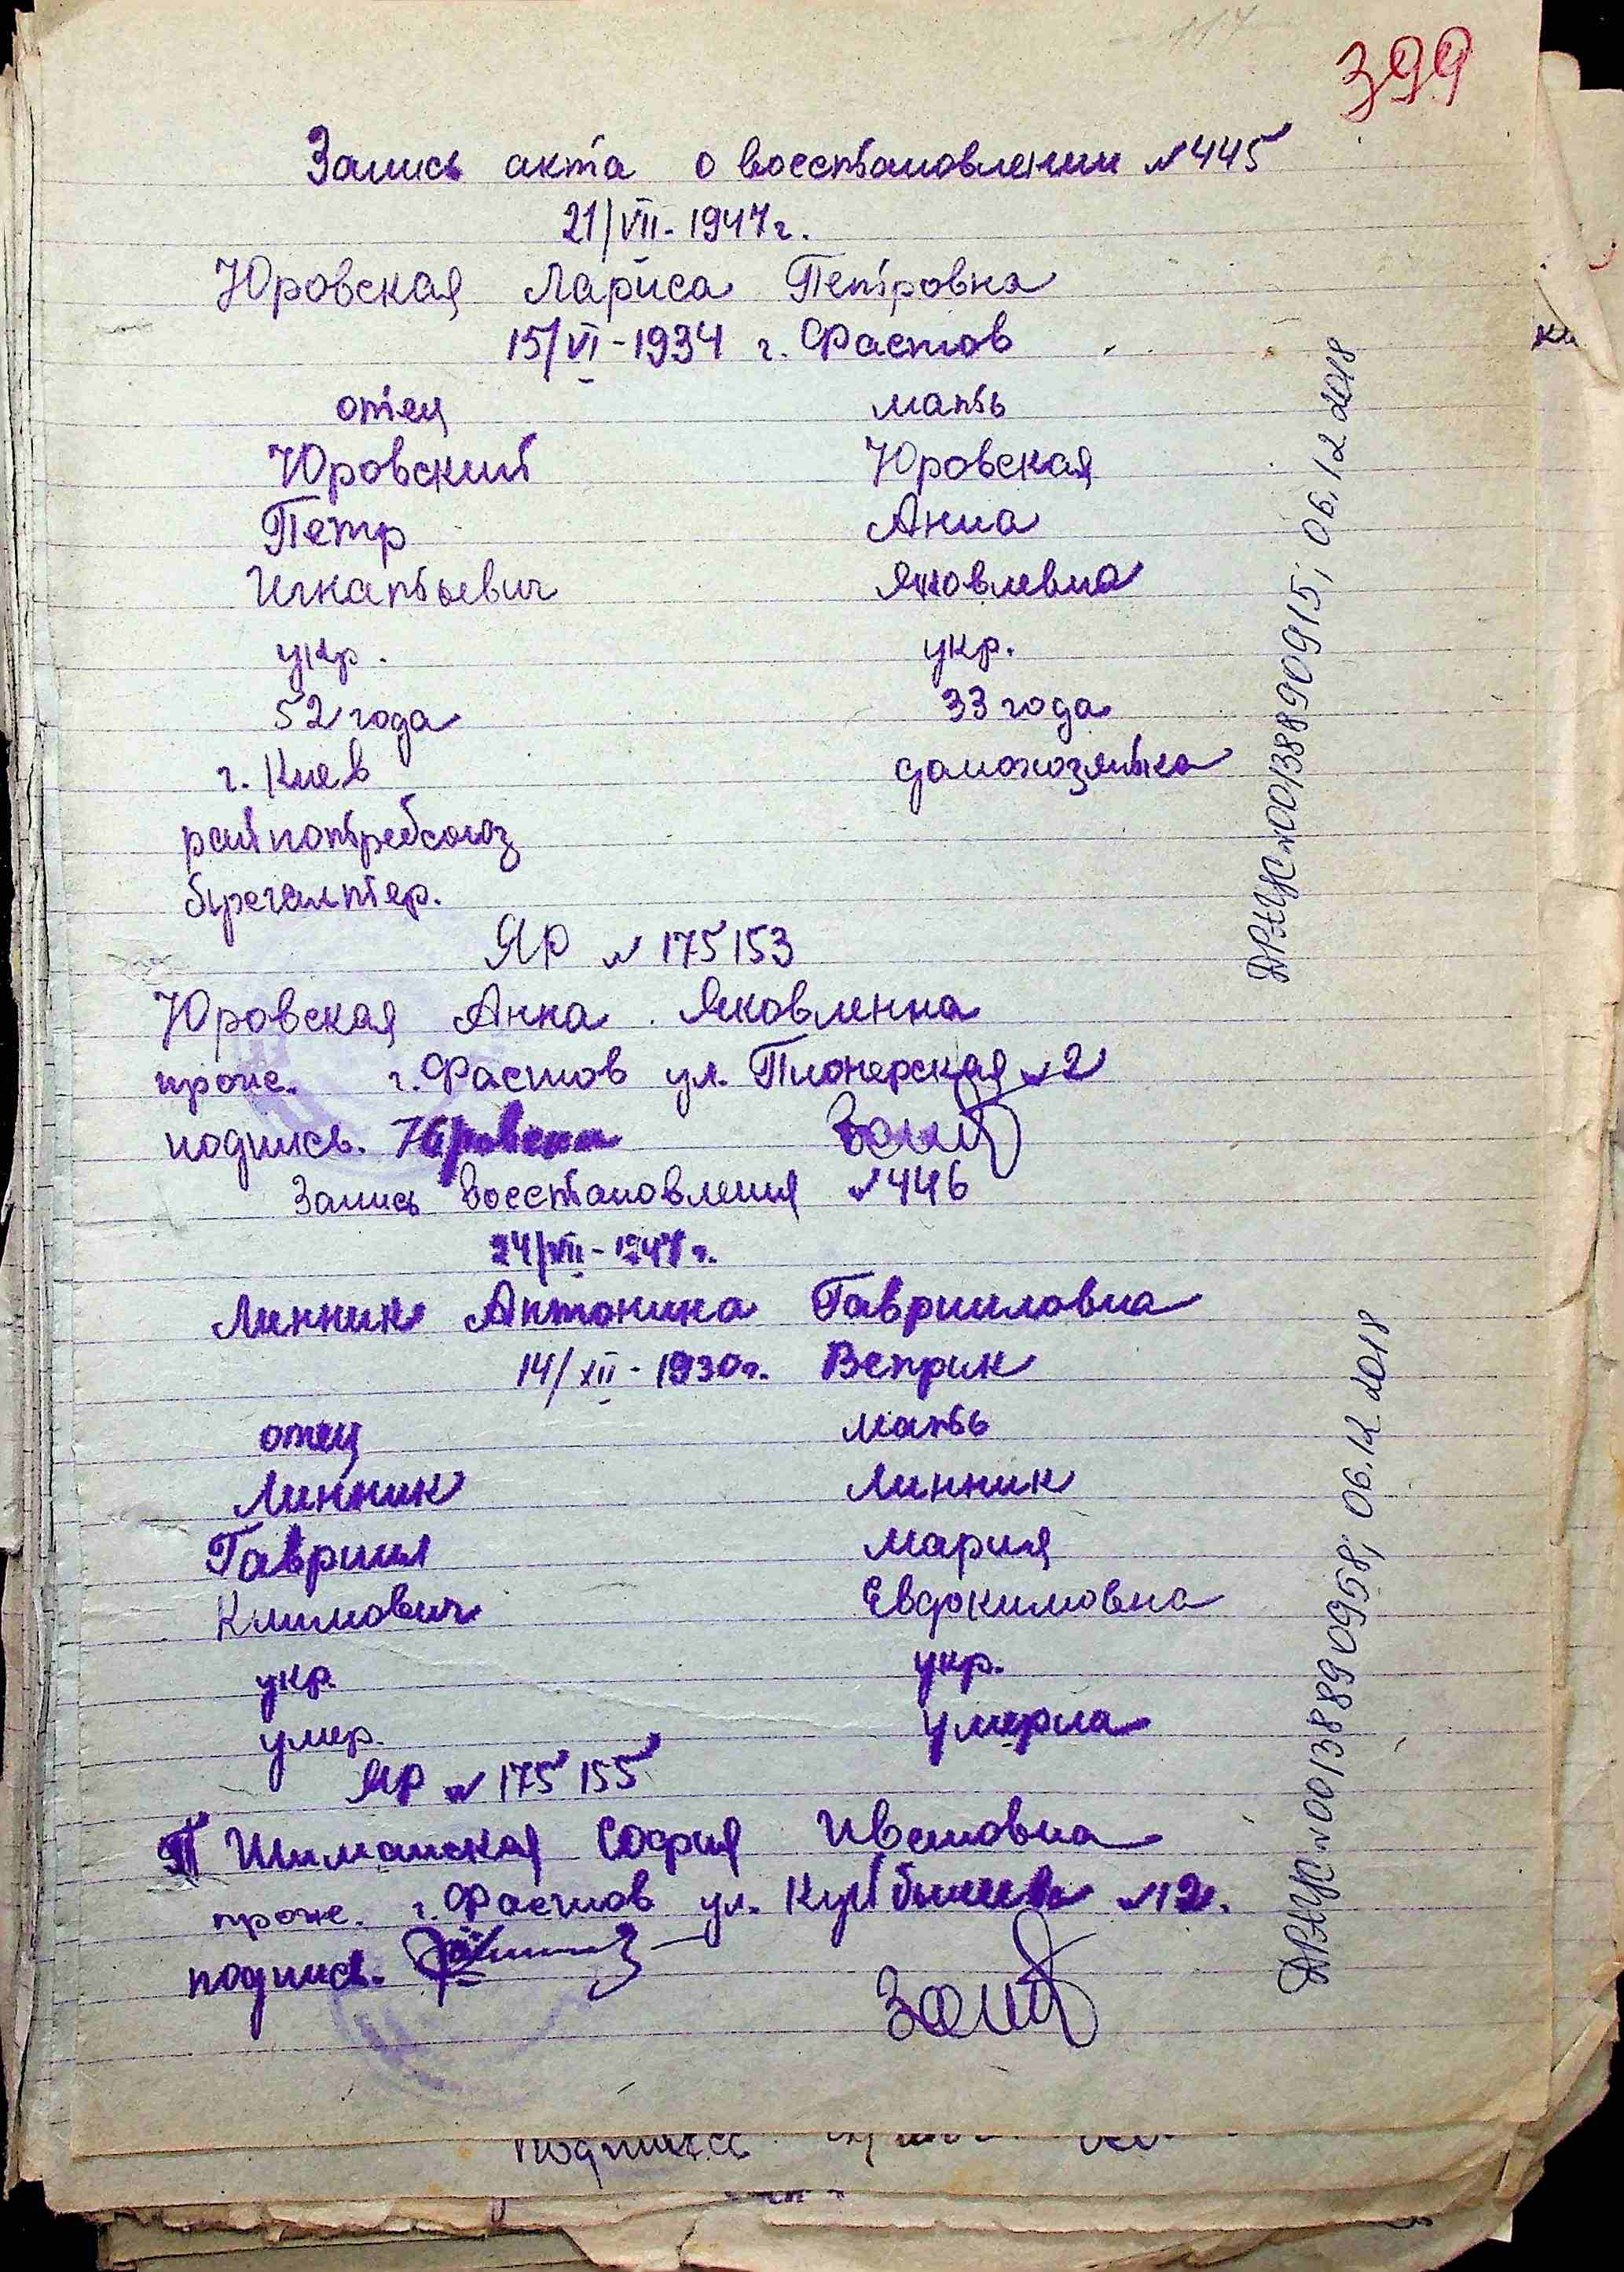 117
399
Запись акта о восстановлении №445
21/VII-1947г.
Юровская Лариса Петровна
15/VI-1934 г. Фастов
отец мать
Юровский Юровская
Петр Анна
Игнатьевич Яковлевна
укр. укр.
52 года 33 года
г. Киев домохозяйка
райпотребсоюз
бухгалтер.
ЯР №175153
Юровская Анна Яковленна
прож. г. Фастов ул. Пионерская №2
подпись. Юровская
Запись восстановления №446
24/VII-1947г.
Линник Антонина Гаврииловна
14/XII-1930г. Веприк
отец мать
Линник Линник
Гавриил Мария
Климович Евдокимовна
укр. укр.
умер. умерла
ЯР №175155
Шиманская София Ивановна
прож. г. Фастов ул. Куйбышева №12.
подпись.
ДРАЦС №00138890915; 06.12.2018
ДРАЦС №00138890958; 06.12.2018